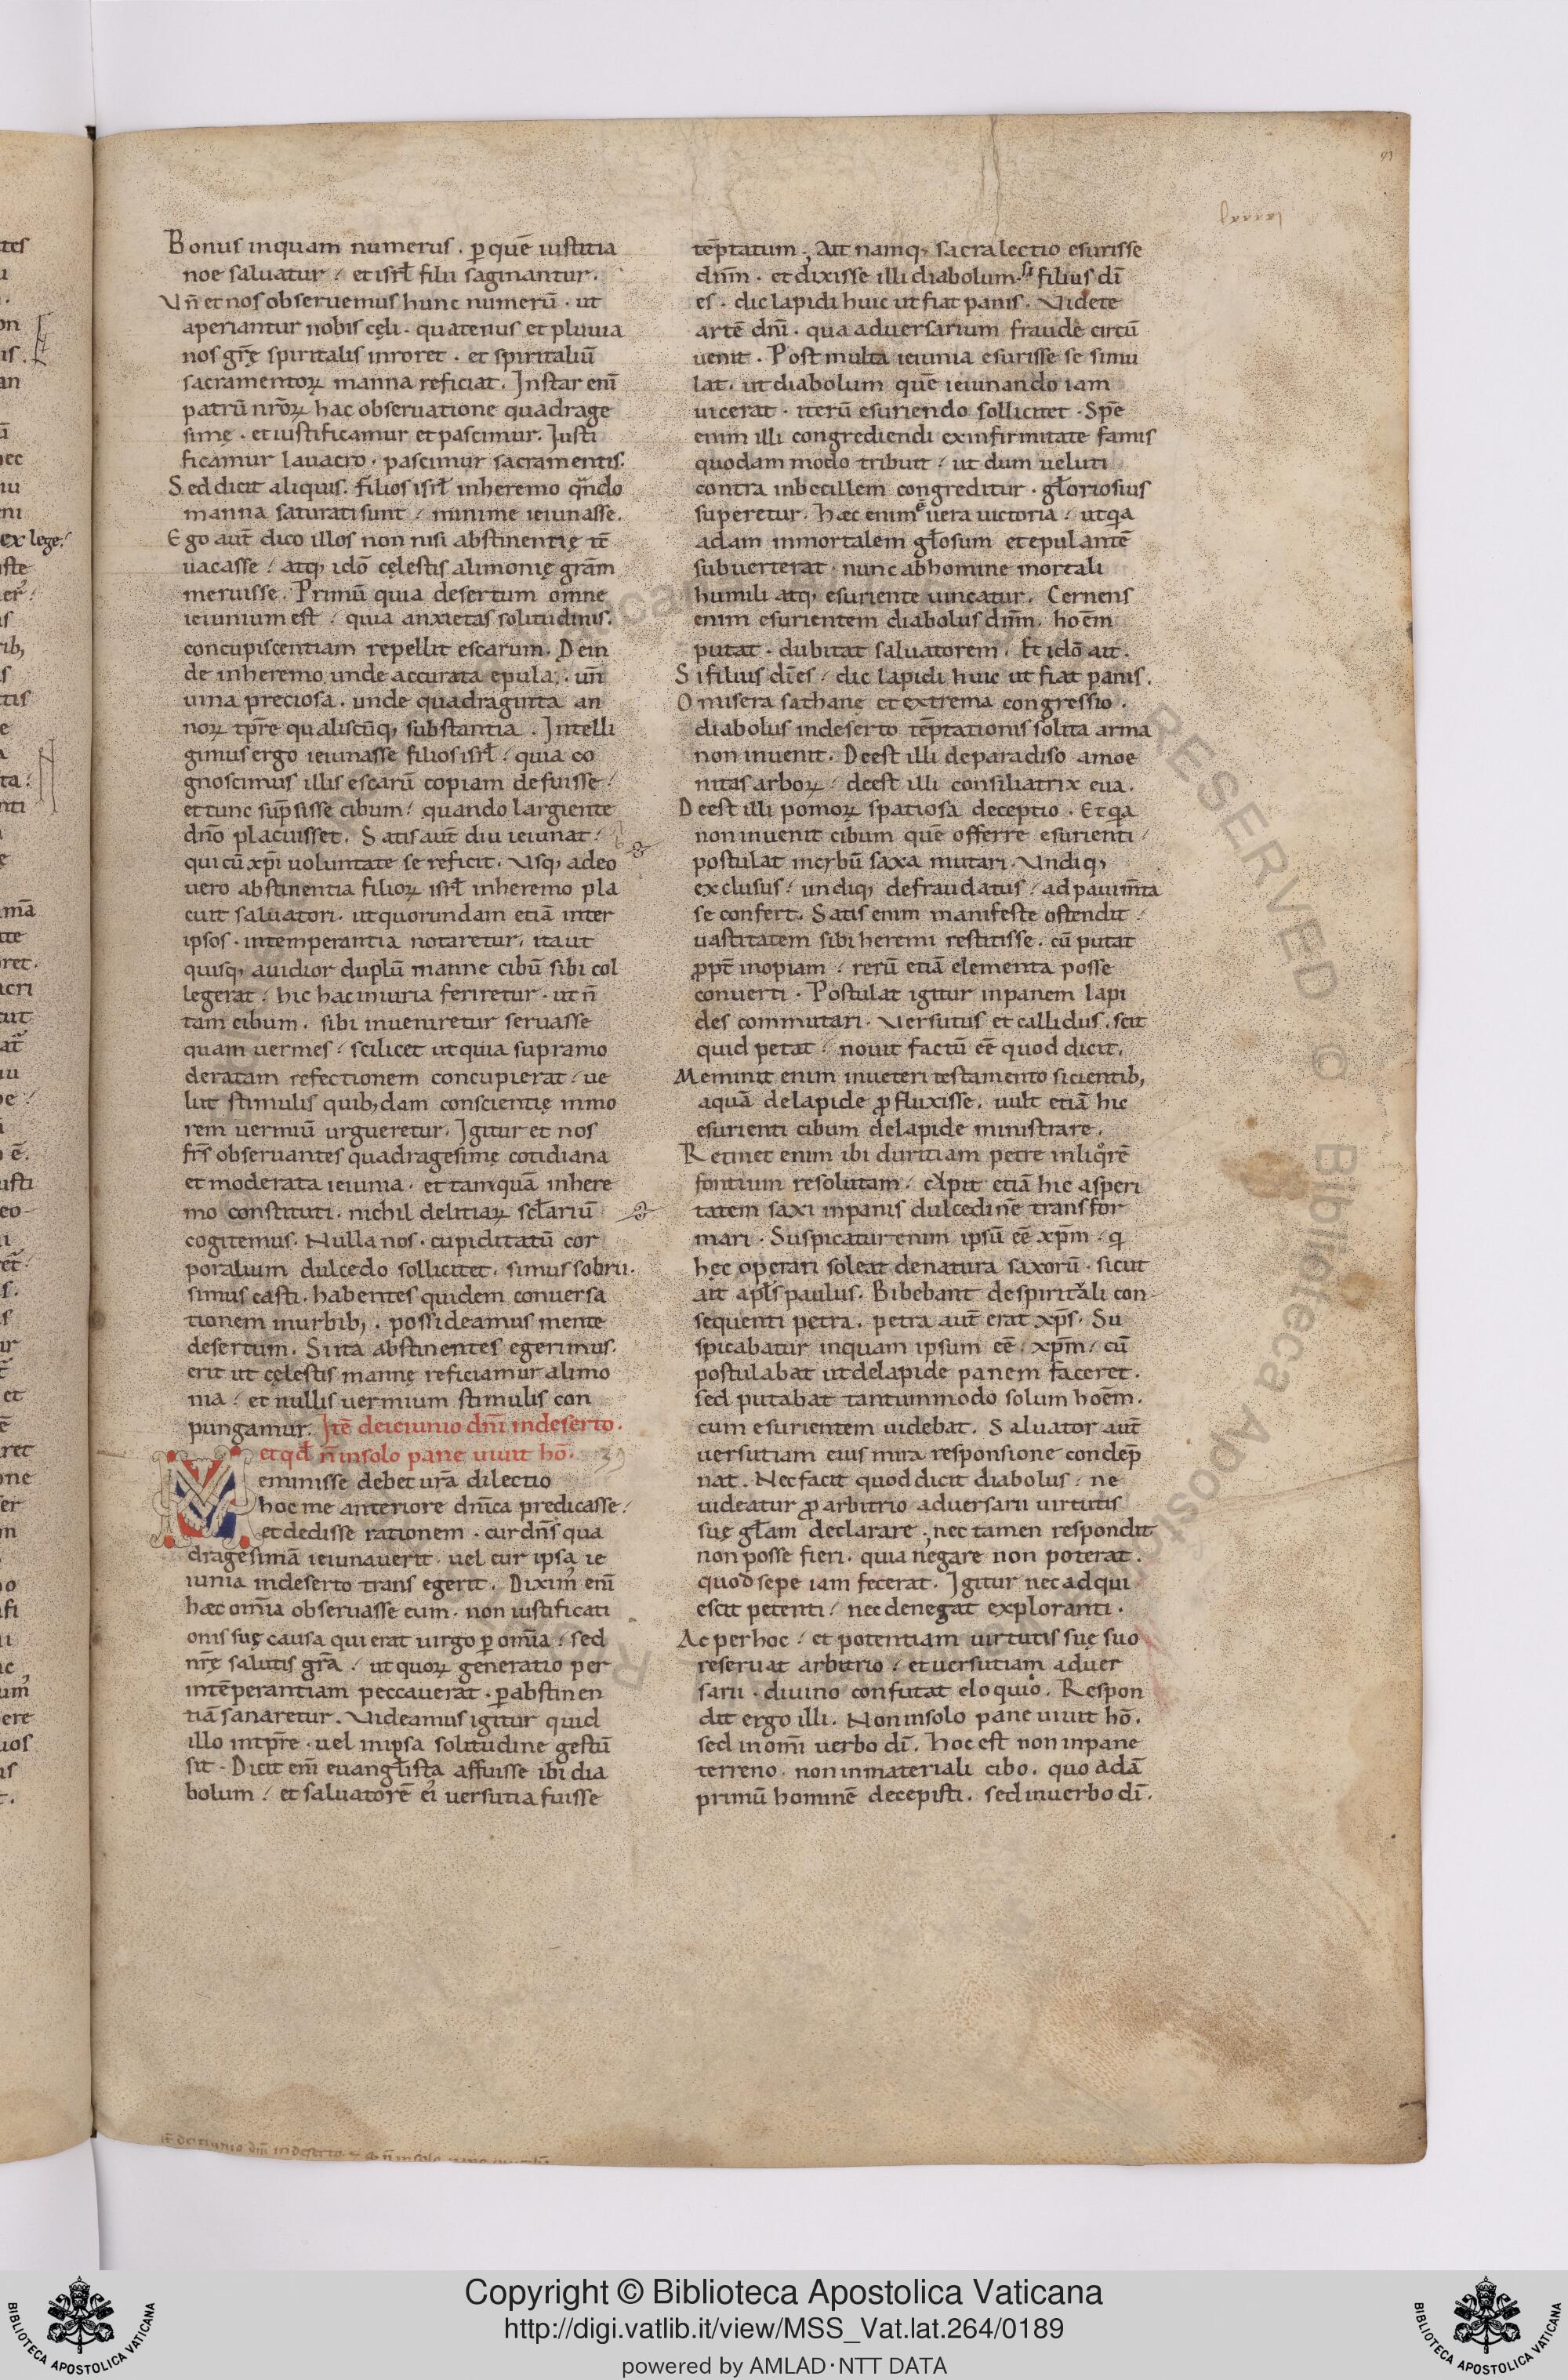 Bonus inquam numerus . p̱ quē iustitia
noe saluatur / et isrł filii saginantur .
Vn̄ et nos obseruemus hunc numerū . ut
aperiantur nobis cęli . quatenus et pluuia
nos grę̄ spiritalis inroret . et spiritaliū
sacramentoꝝ manna reficiat . Instar enī
patrū nrōꝝ hac obseruatione quadrage
simę . et iustificamur et pascimur . Iusti
ficamur lauacro . pascimur sacramentis .
Sed dicit aliquis . filios isrł in heremo qn̄do
manna saturati sunt / minime ieiunasse .
Ego aut̄ dico illos non nisi abstinentię tē
uacasse / atq; idō cęlestis alimonię grām
meruisse . Primū quia desertum omne
ieiunium est / quia anxietas solitudinis .
concupiscentiam repellit escarum . Dein
de in heremo unde accurata epula . un̄
uina preciosa . unde quadraginta an
noꝝ tp̄re qualiscūq; substantia . Intelli
gimus ergo ieiunasse filios isrł / quia co
gnoscimus illis escarū copiam defuisse /
et tunc sūpsisse cibum / quando largiente
dn̄o placuisset . Satis aut̄ diu ieiunat /
qui cū xp̄i uoluntate se reficit . Vsq; adeo
uero abstinentia filioꝝ isrł in heremo pla
cuit saluatori . ut quorundam etiā inter
ipsos . intemperantia notaretur . ita ut
quisq; auidior duplū manne cibū sibi col
legerat / hic hac iniuria feriretur . ut n̄
tam cibum . sibi inueniretur seruasse
quam uermes / scilicet ut quia supramo
deratam refectionem concupierat / ue
lut stimulis quib;dam conscientię inmo
rem uermiū urgueretur . Igitur et nos
frs̄ obseruantes quadragesimę cotidiana
et moderata ieiunia . et tamquā in here
mo constituti . nichil delitiaꝝ sc̄łariū
cogitemus . Nulla nos . cupiditatū cor
poralium dulcedo sollicitet . simus sobrii .
simus casti . habentes quidem conuersa
tionem in urbib; . possideamus mente
desertum . Si ita abstinentes egerimus .
erit ut cęlestis mannę reficiamur alimo
nia / et nullis uermium stimulis con
pungamur . Itē de ieiunio dn̄i in deserto .
et qđ n̄ in solo pane uiuit hō . 39
Meminisse debet ur̄a dilectio
hoc me anteriore dn̄ica predicasse /
et dedisse rationem . cur dn̄s qua
dragesimā ieiunauerit . uel cur ipsa ie
iunia in deserto trans egerit . Diximꝰ enī
hæc om̄ia obseruasse eum . non iustificati
onis suę causa qui erat uirgo p̱ om̄ia / sed
nrę̄ salutis gr̄a / ut quoꝝ generatio per
intēperantiam peccauerat . p̱ abstinen
tiā sanaretur . Videamus igitur quid
illo in tp̄re . uel in ipsa solitudine gestū
sit . Dicit enī euangłista affuisse ibi dia
bolum / et saluatorē eiꝰ uersutia fuisse
lxxxxi
91
tēptatum . Ait namq; sacra lectio esurisse
dn̄m . et dixisse illi diabolum . si filius dī
es . dic lapidi huic ut fiat panis . Videte
artē dn̄i . qua aduersarium fraude circū
uenit . Post multa ieiunia esurisse se simu
lat . ut diabolum quē ieiunando iam
uicerat . iterū esuriendo sollicitet . Spē
enim illi congrediendi ex infirmitate famis
quodam modo tribuit / ut dum ueluti
contra inbecillem congreditur . głoriosius
superetur . Hæc enim ē uera uictoria / ut qa
adam inmortalem głosum et epulantē
subuerterat . nunc ab homine mortali
humili atq; esuriente uincatur . Cernens
enim esurientem diabolus dn̄m . hoēm
putat . dubitat saluatorem . Et idō ait .
Si filius dī es / dic lapidi huic ut fiat panis .
O misera sathane et extrema congressio .
diabolus in deserto tēptationis solita arma
non inuenit . Deest illi de paradiso amoe
nitas arboꝝ / deest illi consiliatrix eua .
Deest illi pomoꝝ spatiosa deceptio . Et qa
non inuenit cibum quē offerre esurienti /
postulat in cybū saxa mutari . Vndiq;
exclusus / undiq; defraudatus / ad pauim̄ta
se confert . Satis enim manifeste ostendit /
uastitatem sibi heremi restitisse . cū putat
ꝓpt̄ inopiam / rerū etiā elementa posse
conuerti . Postulat igitur in panem lapi
des commutari . Versutus et callidus . scit
quid petat / nouit factū eē quod dicit .
Meminit enim in ueteri testamento sicientib;
aquā de lapide ꝓfluxisse . uult etiā hic
esurienti cibum de lapide ministrare .
Retinet enim ibi duritiam petre in liqͦrē
fontium resolutam / cupit etiā hic asperi
tatem saxi in panis dulcedinē transfor
mari . Suspicatur enim ipsū eē xp̄m / q
hęc operari soleat de natura saxorū . sicut
ait apłs paulus . Bibebant de spiritali con-
sequenti petra . petra aut̄ erat xp̄s . Su
spicabatur inquam ipsum eē xp̄m / cū
postulabat ut de lapide panem faceret .
sed putabat tantummodo solum hoēm .
cum esurientem uidebat . Saluator aut̄
uersutiam eius mira responsione condēp
nat . Nec facit quod dicit diabolus / ne
uideatur ꝓ arbitrio aduersarii uirtutis
suę głam declarare ; nec tamen respondit
non posse fieri . quia negare non poterat .
quod sepe iam fecerat . Igitur nec adqui
escit petenti / nec denegat exploranti .
Ac per hoc / et potentiam uirtutis suę suo
reseruat arbitrio / et uersutiam aduer
sarii . diuino confutat eloquio . Respon
dit ergo illi . Non in solo pane uiuit hō .
sed in omī uerbo dī . Hoc est non in pane
terreno . non in materiali cibo . quo adā
primū hominē decepisti . sed in uerbo dī .
Copyright © Biblioteca Apostolica Vaticana
http://digi.vatlib.it/view/MSS_Vat.lat.264/0189
powered by AMLAD·NTT DATA
BIBLIOTECA APOSTOLICA VATICANA
BIBLIOTECA APOSTOLICA VATICANA